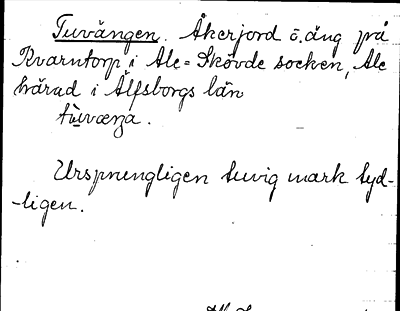 Tuvängen. Åkerjord o. äng på
Kvarntorp i Ale=Skövde socken, Ale
härad i Älfsborgs län
tùvæŋa.
Ursprungligen tuvig mark tyd-
-ligen.